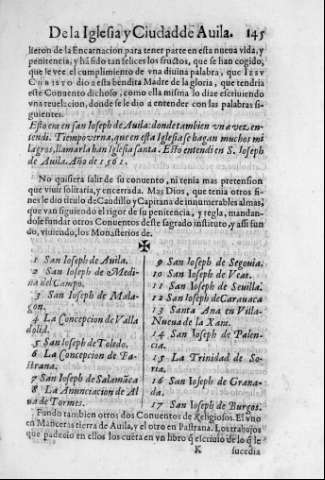 De la Iglesia y Ciudad de Auila. 145
lieron de la Encarnacion para tener parte en esta nueua vida, y
penitencia, y há sido tan felices los fructos, que se han cogido,
que le vee el cumplimiento de vna diuina palabra, que IESV
CHRISTO dio a esta bendita Madre de la gloria, que tendria
este Conuento dichoso, como ella misma lo dize escriuiendo
vna reuelacion, donde se le dio a entender con las palabras si-
guientes.
Esto era en san Ioseph de Auila: donde tambien vna vez en-
tendi. Tiempo verna, que en esta Iglesia se hagan muchos mi
lagros, llamarla han Iglesia santa. Esto entendi en S. Ioseph
de Auila. Año de 1561.
No quisiera salir de su conuento, ni tenia mas pretension
que viuir solitaria, y encerrada. Mas Dios, que tenia otros fi-
nes le dio titulo de Caudillo y Capitana de innumerables almas,
que van siguiendo el rigor de su penitencia, y regla, mandan-
dole fundar otros Conuentos deste sagrado instituto, y assi fun
do, viuiendo, los Monasterios de.
1 San Ioseph de Auila.
2 San Ioseph de Medi-
na del Campo.
3 San Ioseph de Mala-
gon.
4 La Concepcion de Valla
dolid.
5 San Ioseph de Toledo.
6 La Concepcion de Pa-
strana.
7 San Ioseph de Salamãca
8 La Anunciacion de Al
ua de Tormes.
9 San Ioseph de Segouia.
10 San Ioseph de Veas.
11 San Ioseph de Seuilla.
12 San Ioseph de Carauaca
13 Santa Ana en Villa-
Nueua de la Xara.
14 San Ioseph de Palen-
cia.
15 La Trinidad de So-
ria.
16 San Ioseph de Grana-
da.
17 San Ioseph de Burgos.
Fundo tambien otros dos Conuentos de Religiosos. El vno
en Mancera tierra de Auila, y el otro en Pastrana. Los trabajos
que padecio en ellos los cuẽta en vn libro q̃ escriuio de lo q̃ le
K sucedia